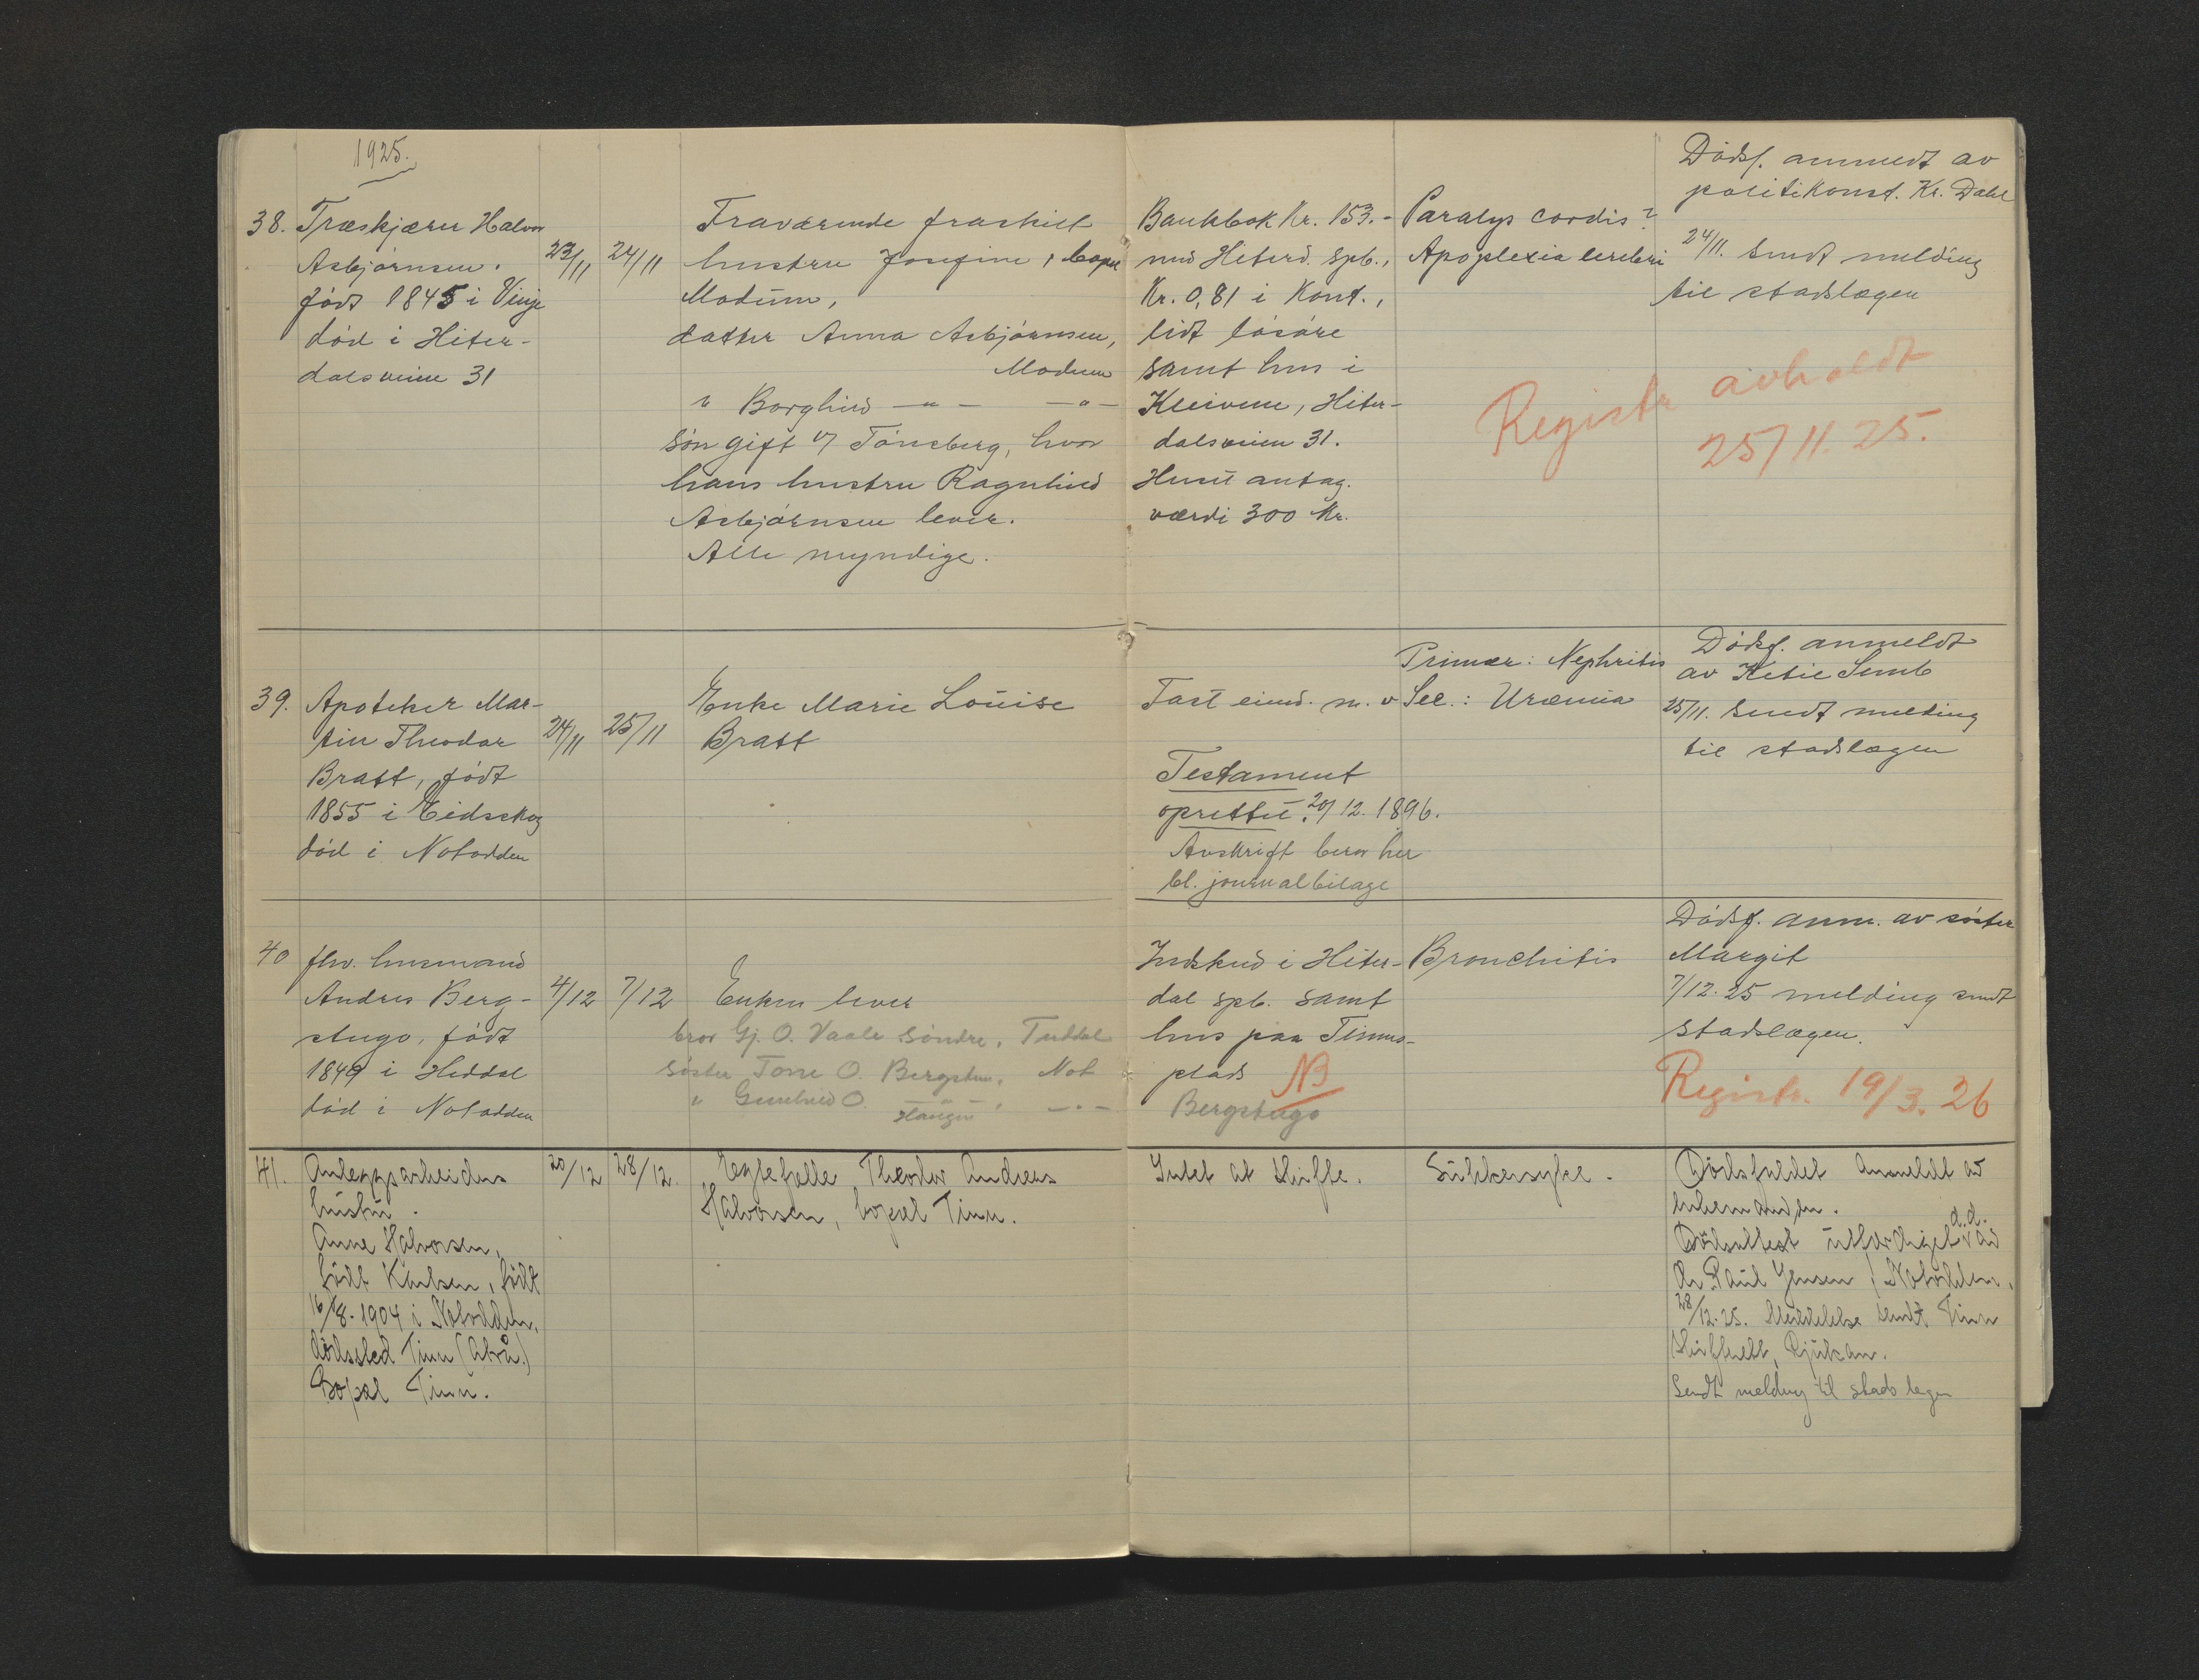 1925.
38. Træskjærer Halvor
Asbjørnsen.
født 1845 i Vinje
død i Hiter-
dalsveien 31
23/11
24/11
Fraværende fraskilt
hustru Josefine, bopæl
Modum,
datter Anna Asbjørnsen,
Modum
" Borghild —"— —"—
søn gift i/ Tønsberg, hvor
hans hustru Ragnhild
Asbjørnsen lever.
Alle myndige.
Bankbok Kr. 153.-
med Hiterd. spb.,
Kr. 0,81 i Kont.,
lidt løsøre
samt hus i
Kleivene, Hiter-
dalsveien 31.
Huset antag.
værdi 300 Kr.
Paralys cordis?
Apoplexia cerebri
Dødsf. anmeldt av
politikonst. Kr. Dahl
24/11. sendt melding
til stadslægen
Registr avholdt
25/11.25.
39. Apoteker Mar-
tin Theodor
Bratt, født
1855 i Eidskog
død i Notodden
24/11
25/11
Enke Marie Louise
Bratt
Fast eiend. m. v
Testament
oprettet 20/12.1896.
Avskrift beror her
bl. journalbilage
Primær: Nephritis
Sec.: Uræmia
Dødsf. anmeldt
av Ketil Semb
25/11. sendt melding
til stadslægen
40 fhv. husmand
Andres Berg-
stugo, født
1849 i Heddal
død i Notodden
4/12
7/12
Enken lever
bror Gj. O. Vaale søndre, Tuddal
søster Tone O. Bergstun, Not
" Gunhild O. —"— , —"—
Haugen
Indskud i Hiter-
dal spb. samt
hus paa Tinnes-
plads NB
Bergstugo
Bronchitis
Dødsf. anm. av søster
Margit
7/12.25 melding sendt
stadslægen.
Registr. 19/3.26
41. Anlægsarbeiders
hustru.
Anne Halvorsen,
født Karlsen, født
16/8.1904 i Notodden,
dødssted Tinn (Atrå.)
Bopæl Tinn.
20/12
28/12.
Egtefelle Theodor Andreas
Halvorsen, bopæl Tinn.
Intet at skifte.
Sukkersyke.
Dødsfaldet anmeldt av
enkemanden.
d.d.
Dødsattest utfærdiget av
Dr. Paul Jensen, Notodden.
28/12.25. Meddelelse sendt Tinn
skifterett, Rjukan.
Sendt melding til stadslegen